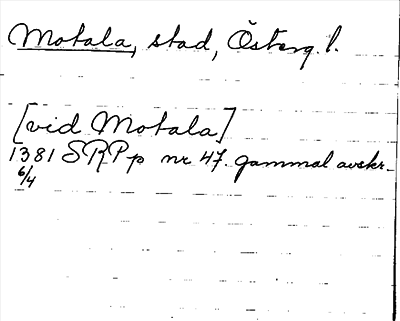 Motala, stad, Österg. l.
[vid Motala]
1381 SRPp nr 47. gammal avskr.
6/4